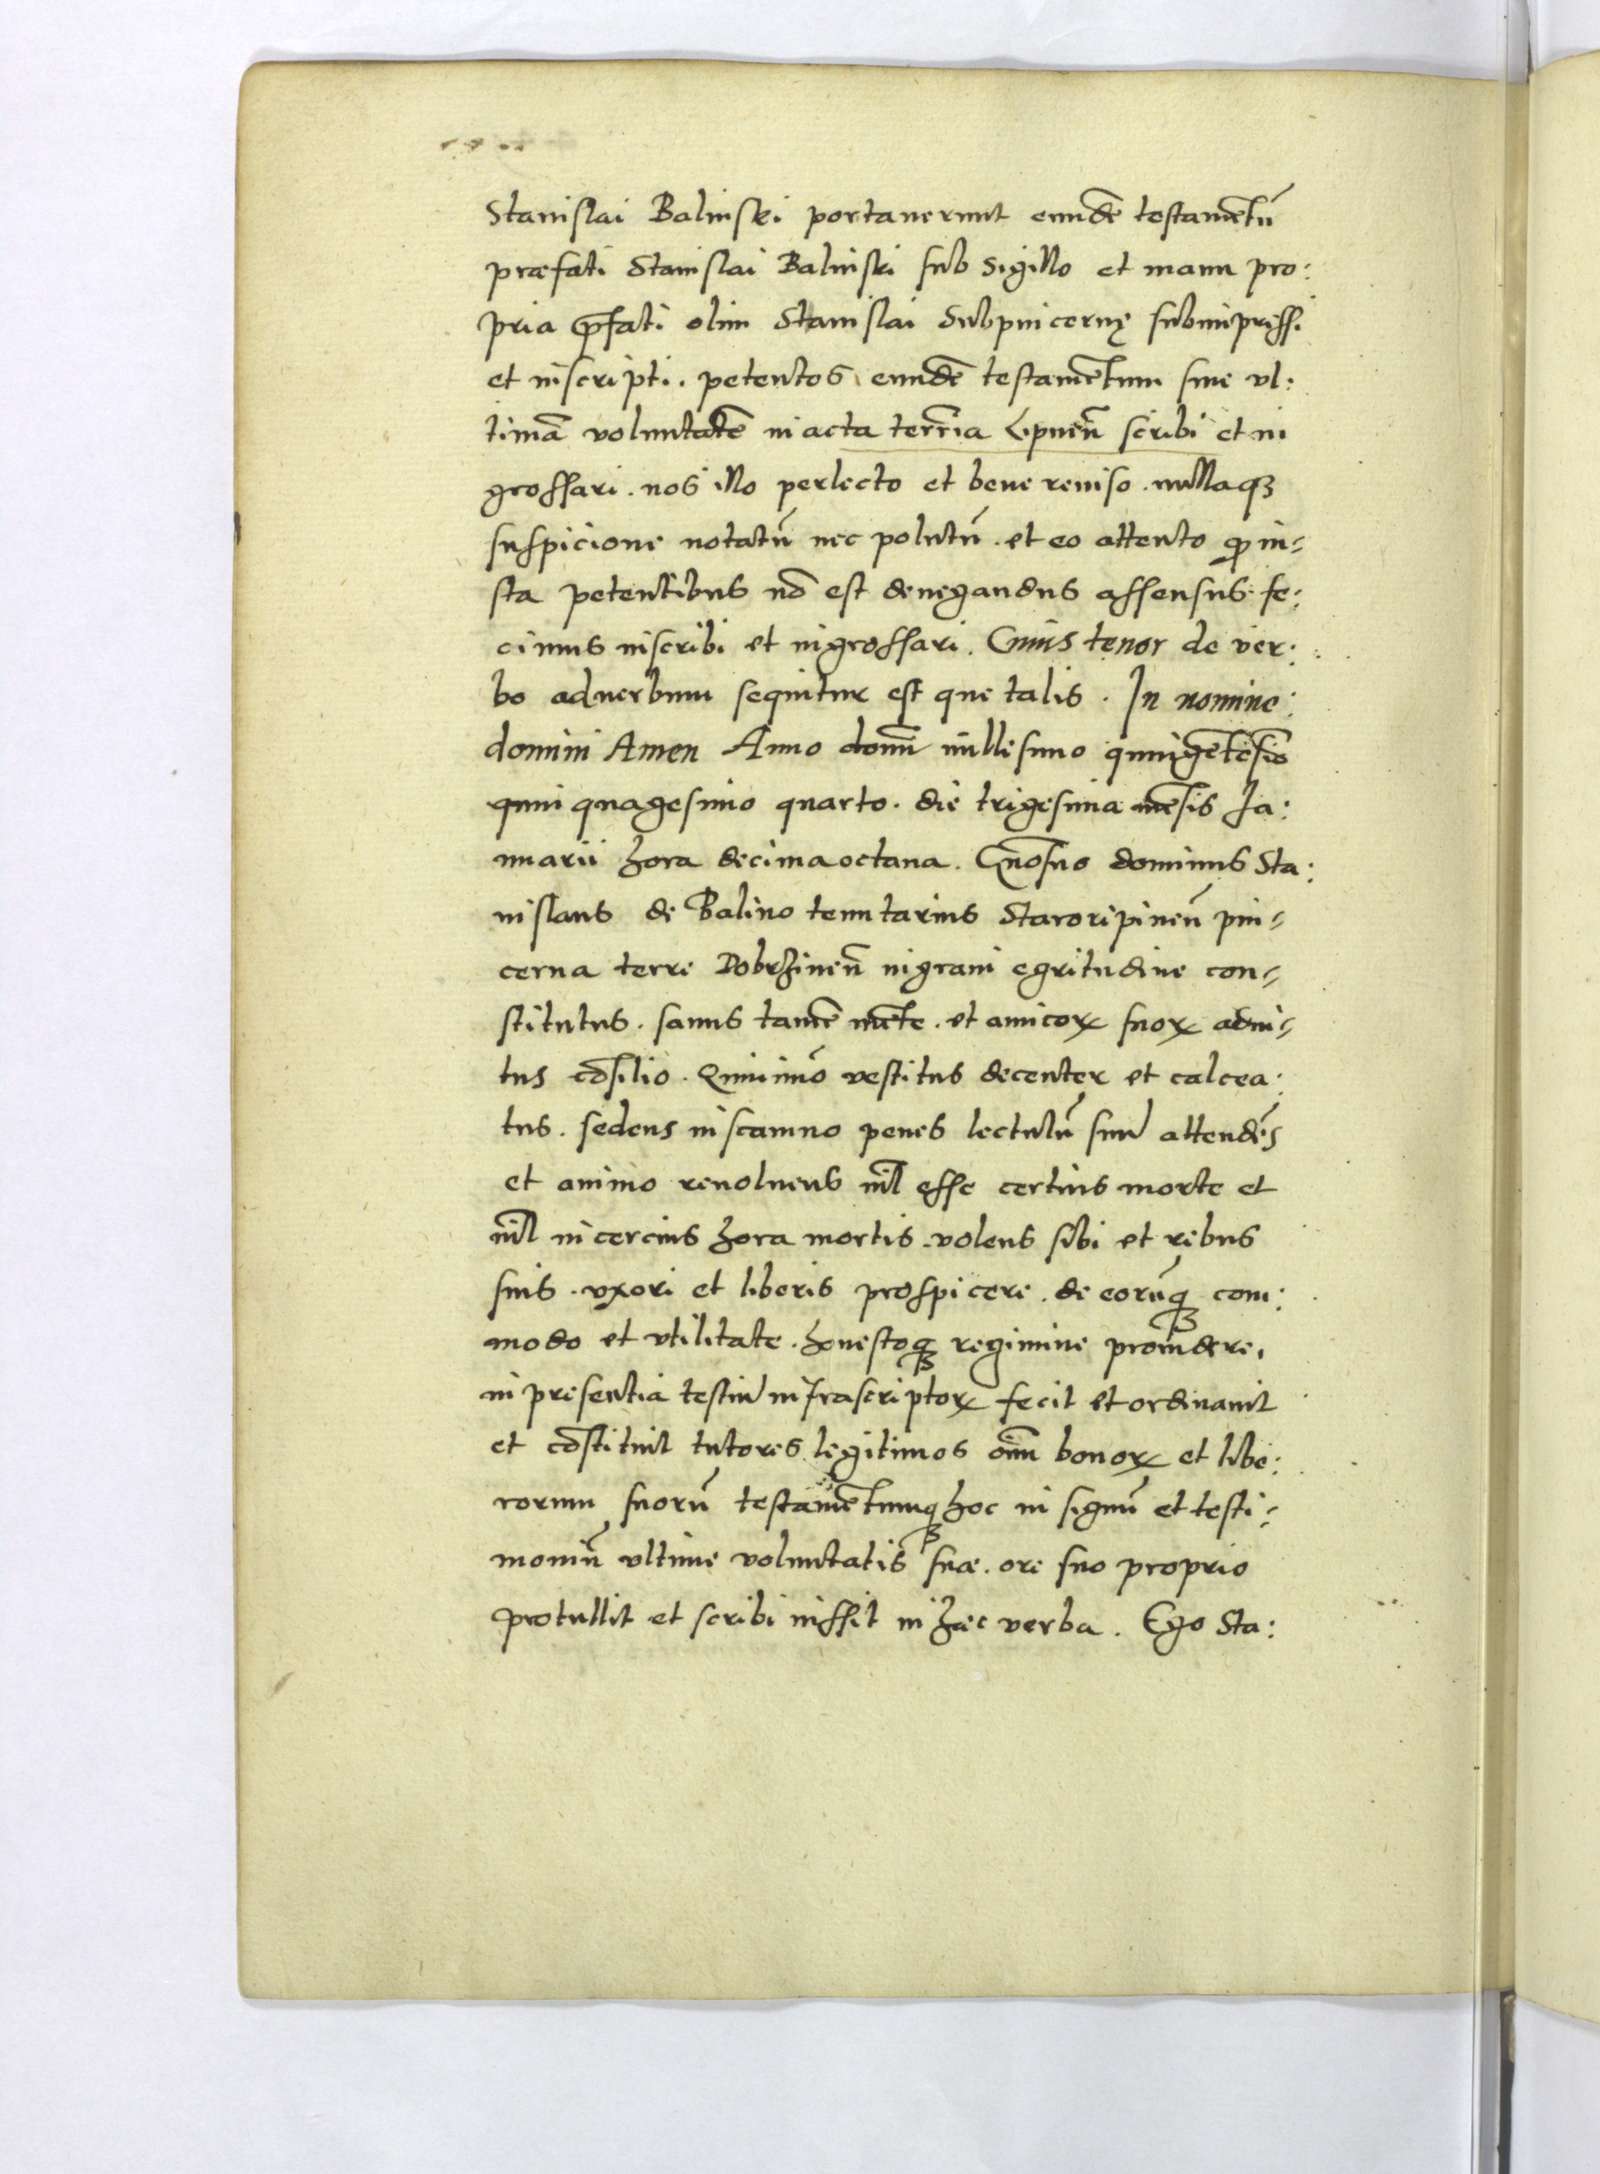 Stanislai Balinski portauerunt eundē testamētū
præfati Stanislai Balinski sub sigillo et manu pro:
pria p̄fati olim Stanislai Subpincernę subimpressi
et inscripti. petentes eundē testamētum siue vl:
timā voluntatē in acta terrīa Lipneñ scribi et in
grossari. nos illo perlecto et bene reuiso. nullaqꝫ
suspicione notatū nec polutū. et eo attento ꝙ iu-
sta petentibus nō est denegandus assensus. fe:
cimus inscribi et ingrossari. Cuius tenor de ver:
bo aduerbum sequitur est que talis. In nomine
domini Amen Anno domī millesimo quingētesīo
quinquagesimo quarto. die trigesima mēsis Ja:
nuarii hora decimaoctaua. Gñosus dominus Sta:
nislaus de Balino tenutarius Staroripineñ pin-
cerna terre Dobrzineñ ingraui egritudine con-
stitutus. sanus tamē mēte. et amicoꝝ suoꝝ adui-
tus cōsilio. Quinimō vestitus decenter et calcea:
tus. sedens in scamno penes lectulū suū attendēs
et animo reuoluens nīl esse certius morte et
nīl incercius hora mortis. volens sibi et rebus
suis. vxori et liberis prospicere. de eorūqꝫ com:
modo et vtilitate. honestoqꝫ regimine prouidere.
in presentia testiū infrascriptoꝝ fecit et ordinauit
et cōstituit tutores legitimos oīm bonoꝝ et libe:
rorum suorū testamētumqꝫ hoc in signū et testi-
moniū vltime voluntatis suæ. ore suo proprio
protullit et scribi iussit in hæc verba. Ego Sta: